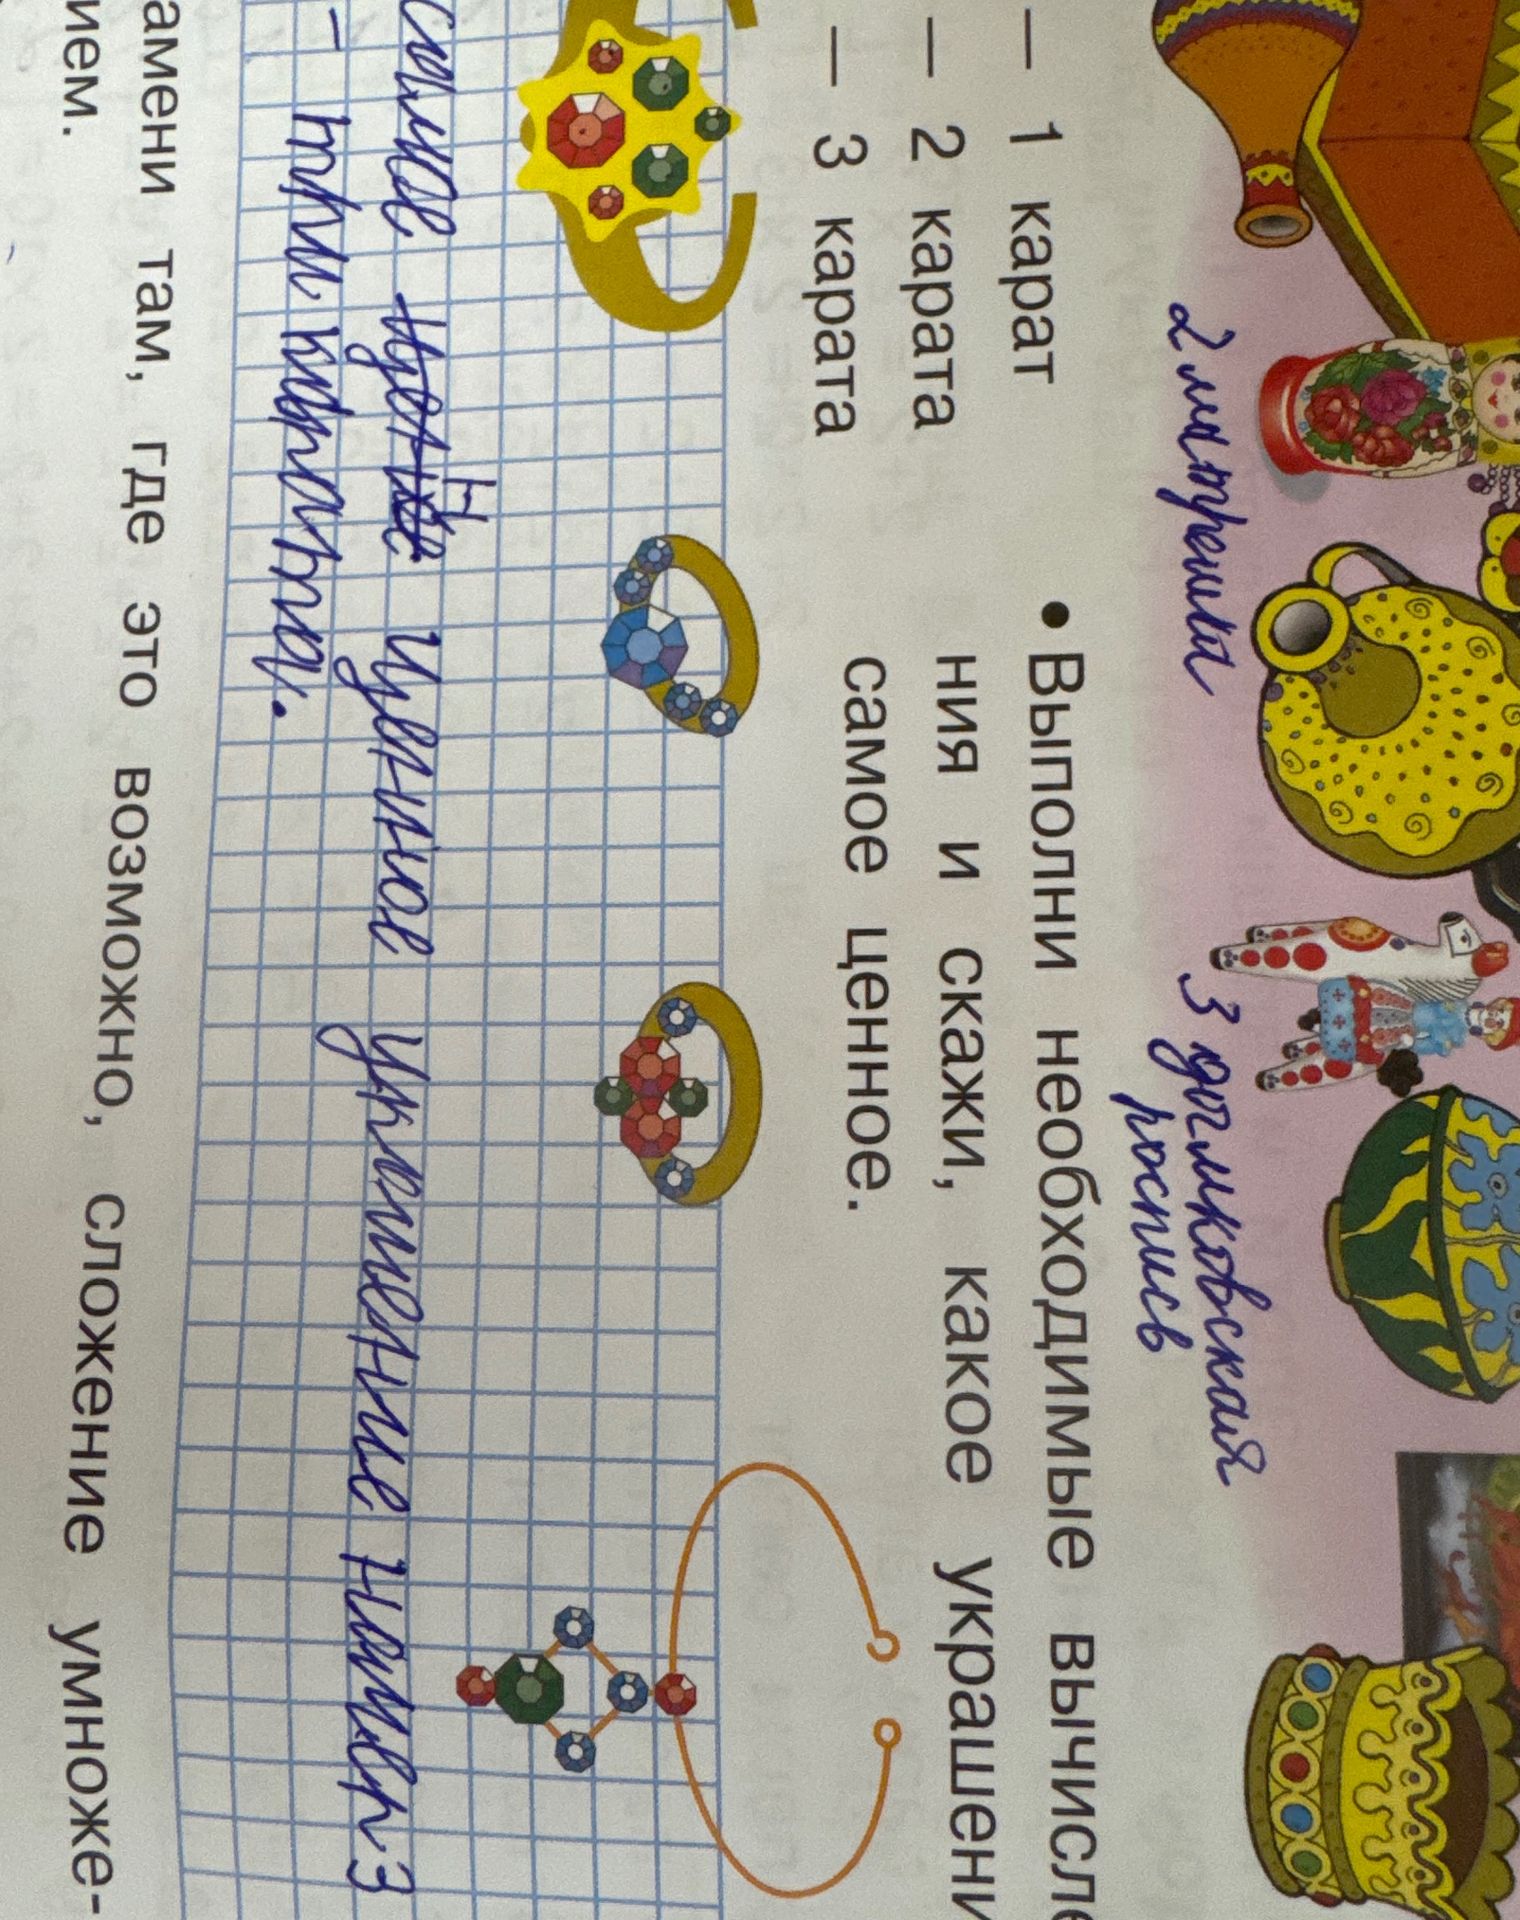 2 матрешки
3 дымковская
роспись
— 1 карат
— 2 карата
— 3 карата
• Выполни необходимые вычисле
ния и скажи, какое украшени
самое ценное.
самое ценное украшение номер 3
– три карата.
амени там, где это возможно, сложение умноже-
ием.